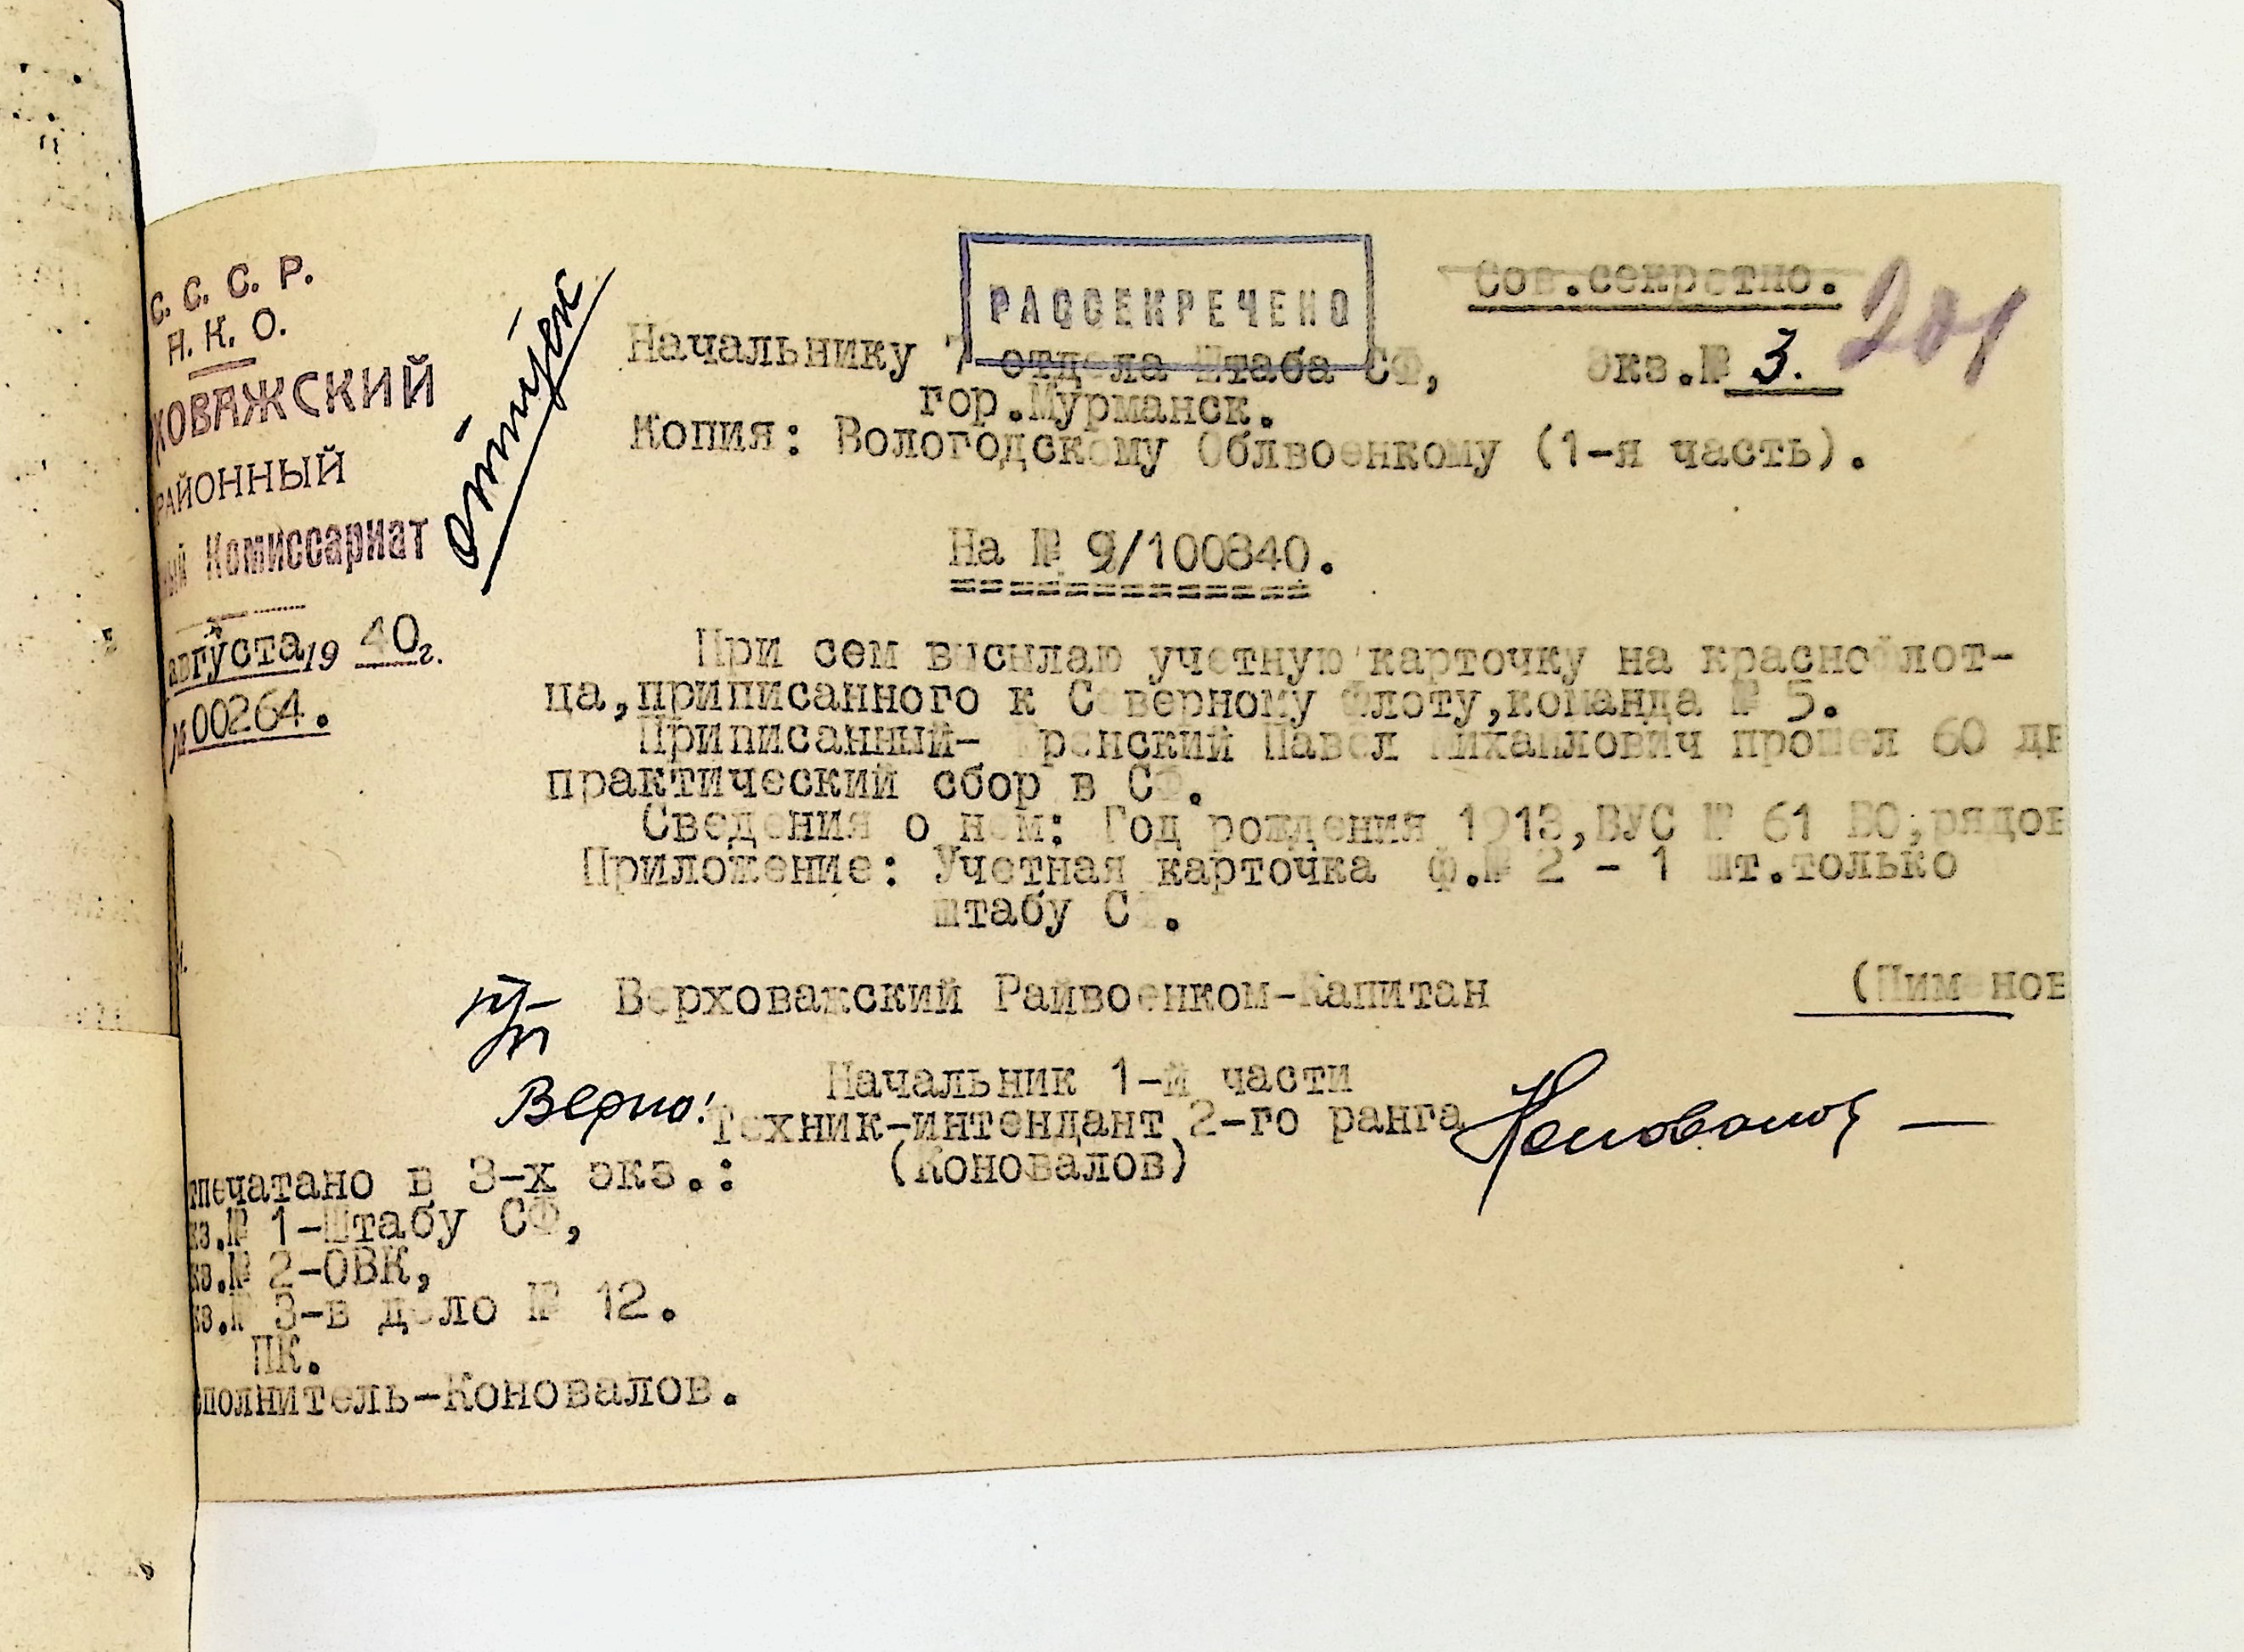 С. С. С. Р.
Н. К. О.
ХОВАЖСКИЙ
РАЙОННЫЙ
ный Комиссариат
августа 19 40 г.
№ 00264.
РАССЕКРЕЧЕНО
Сов.секретно.
Начальнику 7 отдела Штаба СФ,
Экз.№ 3.
гор.Мурманск.
Копия: Вологодскому Облвоенкому (1-я часть).
На № 9/100840.
При сем высылаю учетную карточку на краснофлот-
ца,приписанного к Северному Флоту,команда № 5.
Приписанный- Павел Михайлович прошел 60 дн
практический сбор в СФ.
Сведения о нем: Год рождения 1913,ВУС № 61 ВО,рядов
Приложение: Учетная карточка ф.№ 2 - 1 шт.только
штабу СФ.
Верховажский Райвоенком-Капитан (Пименов
пп
Начальник 1-й части
Верно! Техник-интендант 2-го ранга Коновалов
(Коновалов)
тпечатано в 3-х экз.:
кз.№ 1-Штабу СФ,
кз.№ 2-ОВК,
кз.№ 3-в дело № 12.
ПК.
сполнитель-Коновалов.